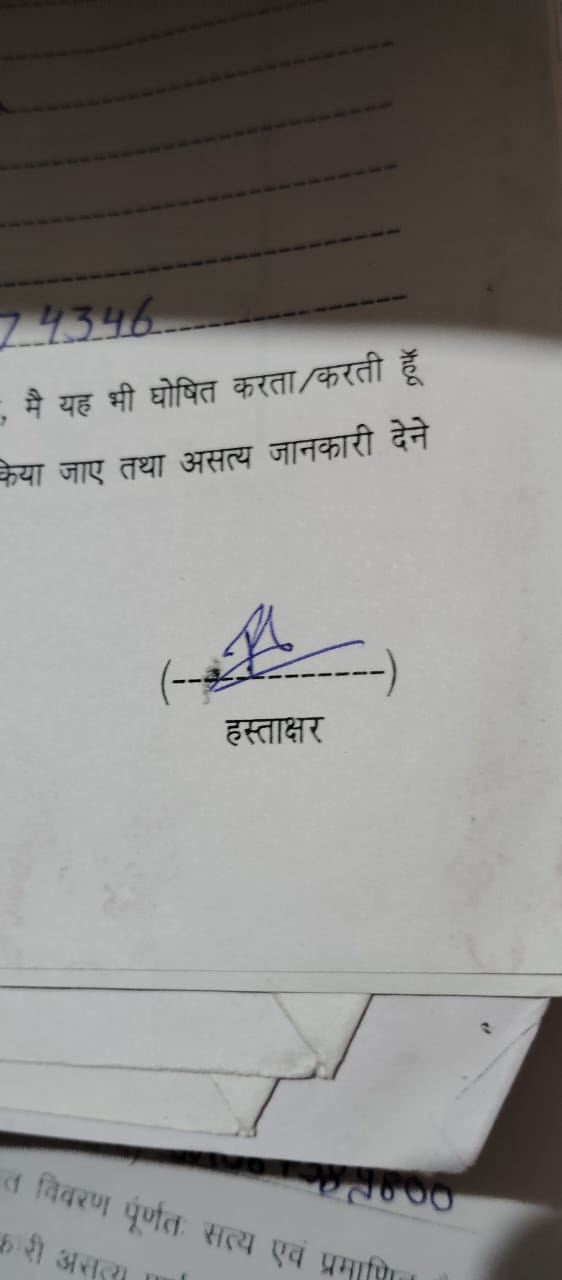 74346
, मै यह भी घोषित करता/करती हूँ
किया जाए तथा असत्य जानकारी देने
(------------)
हस्ताक्षर
विवरण पूंर्णतः सत्य एवं
असत्य